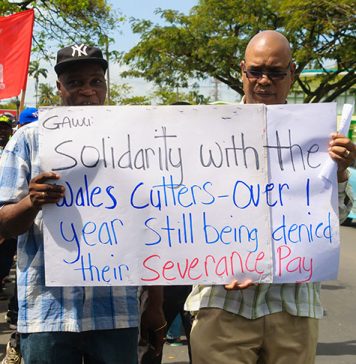 NY
GAWU:
Solidarity with the
Wales Cutters-Over 1
year still being denied
their Severance Pay